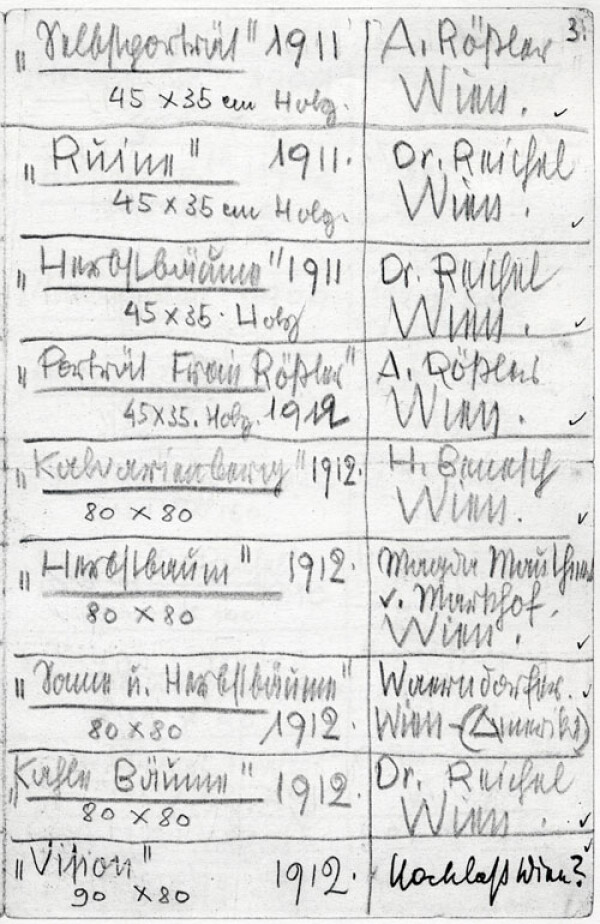 3.
„Selbstporträt" 1911 A. Rößler
45 x 35 cm Holz. Wien. ✓
„Ruine" 1911. Dr. Reichel
45 x 35 cm Holz. Wien. ✓
„Herbstbäume" 1911 Dr. Reichel
45 x 35. Holz Wien. ✓
„Porträt Frau Rößler" A. Rößler
45x35. Holz. 1912 Wien. ✓
„Kalvarienberg" 1912. H. Benesch
80 x 80 Wien. ✓
„Herbstbaum" 1912. Magda Mautner
v. Markhof.
80 x 80 Wien. ✓
„Sonne u. Herbstbäume" Waerndorfer. ✓
80 x 80 1912. Wien - (Amerika)
„Kahle Bäume" 1912. Dr. Reichel
80 x 80 Wien. ✓
„Vision" 1912. Nachlaß Wien? ✓
90 x 80